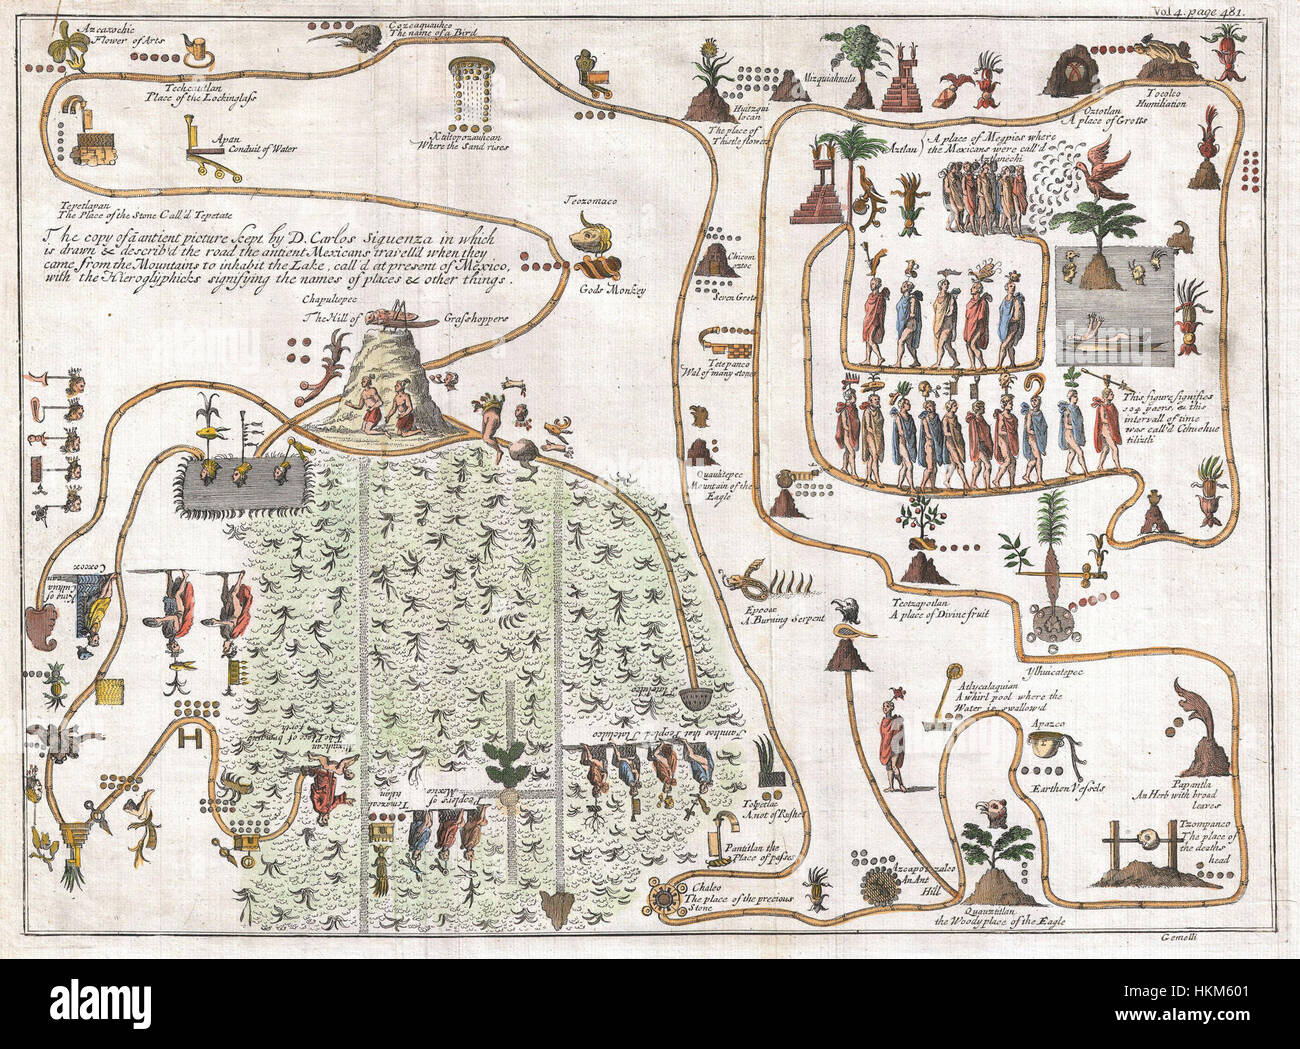 Vol 4. page 481.
Azcaxochic
Flower of Arts
Cozcaquauhco
The name of a Bird
Techcaitlan
Place of the Lockinglass
Apan
Conduit of Water
Xaltopozauhcan
Where the Sand rises
Tepetlapan
The Place of the Stone Call'd Tepetate
The copy of â antient picture kept by D. Carlos Siguenza in which
is drawn & describ'd the road the antient Mexicans travell'd when they
came from the Mountains to inhabit the Lake, call'd at present of Mexico,
with the Hieroglyphicks signifying the names of places & other things.
Teozomaco
Gods Monkey
Chapultepec
The Hill of Grasshoppers
Huitzqui
locan
The place of
Thistle flowers
Mizquiahnala
Oztotlan
A place of Grotts
Tocolco
Humiliation
Aztlan
A place of Megpies where
the Mexicans were call'd
Aztlanechi
Chicom
oztoc
Seven Grots
Tetepanco
Wal of many stones
Quauhtepec
Mountain of the
Eagle
This figure signifies
104 years, & this
intervall of time
was call'd Cehuehue
tiliztli
Epcoac
A Burning Serpent
Teotzapotlan
A place of Divine fruit
Ylhuicatepec
Atlycalaquian
A whirl pool where the
Water is swallow'd
Apazco
Earthen Vessels
Papantla
An Herb with broad
leaves
Tzompanco
The place of
the deaths
head
Coxcox
King of
Culhua
can
Tolpetlac
A not of Rushes
Pantitlan the
Place of passes
Chalco
The place of the precious
Stone
Azcapotzalco
An Ant
Hill
Quauztitlan
the Woody place of the Eagle
People of
Mexico
Gemelli
alamy
Image ID: HKM601
www.alamy.com